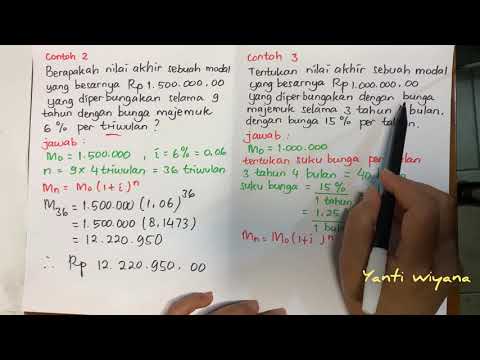 Contoh 2
Berapakah nilai akhir sebuah modal
yang besarnya Rp 1.500.000.00
yang diperbungakan selama 9
tahun dengan bunga majemuk
6 % per triwulan ?
jawab :
M₀ = 1.500.000 , i = 6% = 0,06
n = 9 x 4 triwulan = 36 triwulan
Mn = M₀ (1+i)ⁿ
M₃₆ = 1.500.000 (1,06)³⁶
= 1.500.000 (8,1473)
= 12.220.950
∴ Rp 12.220.950.00
Contoh 3
Tentukan nilai akhir sebuah modal
yang besarnya Rp 1.000.000.00
yang diperbungakan dengan bunga
majemuk selama 3 tahun bulan.
dengan bunga 15 % per
jawab :
M₀ = 1.000.000
tentukan suku bunga per
3 tahun 4 bulan = 40
suku bunga = 15 %
1 tahun
= 1.25
1 bulan
Mn = M₀ (1+i)ⁿ
Yanti Wiyana